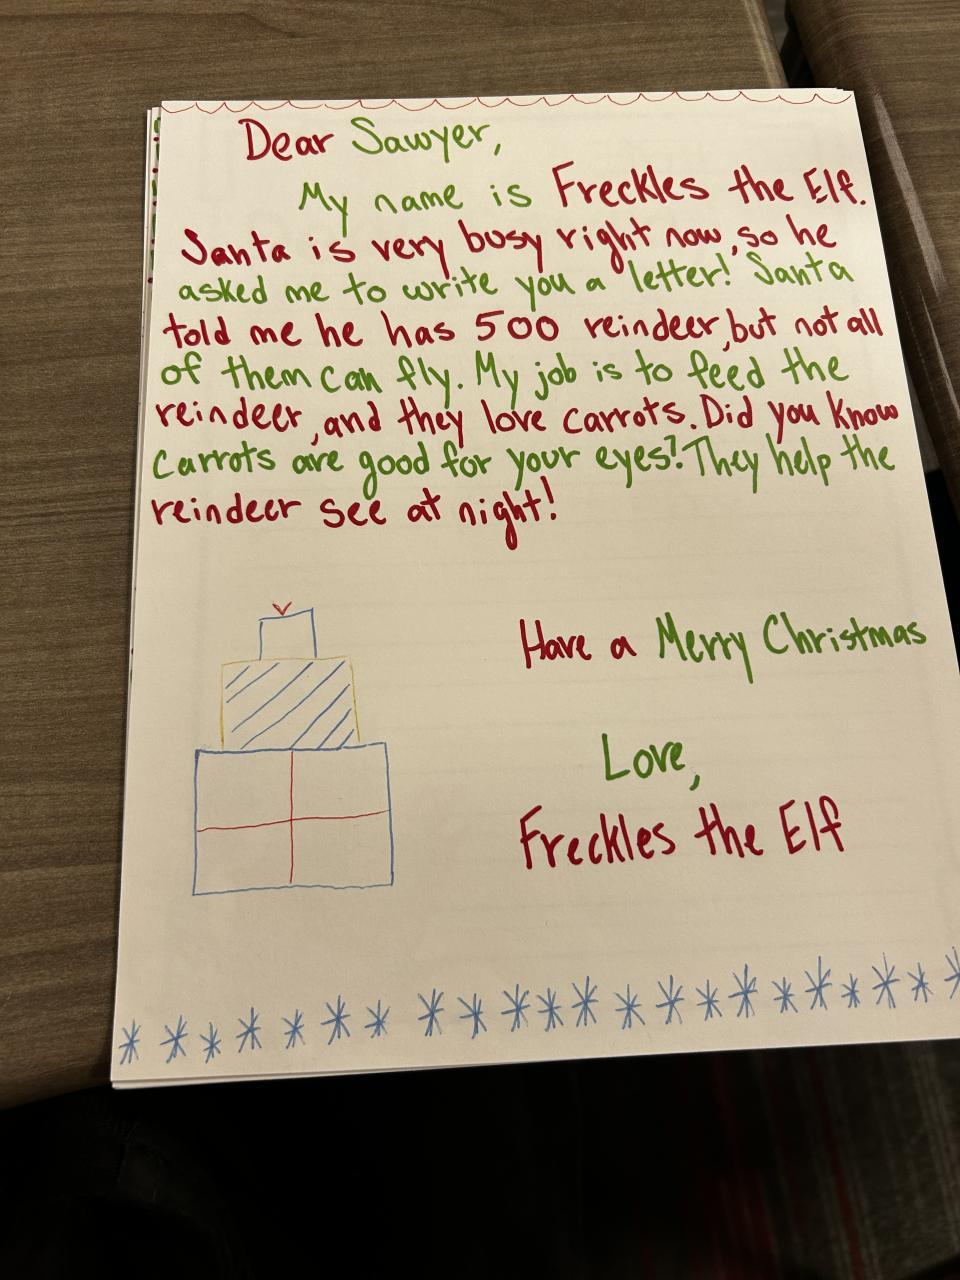 Dear Sawyer,
My name is Freckles the Elf.
Santa is very busy right now, so he
asked me to write you a letter! Santa
told me he has 500 reindeer, but not all
of them can fly. My job is to feed the
reindeer, and they love carrots. Did you know
carrots are good for your eyes? They help the
reindeer see at night!
Have a Merry Christmas
Love,
Freckles the Elf